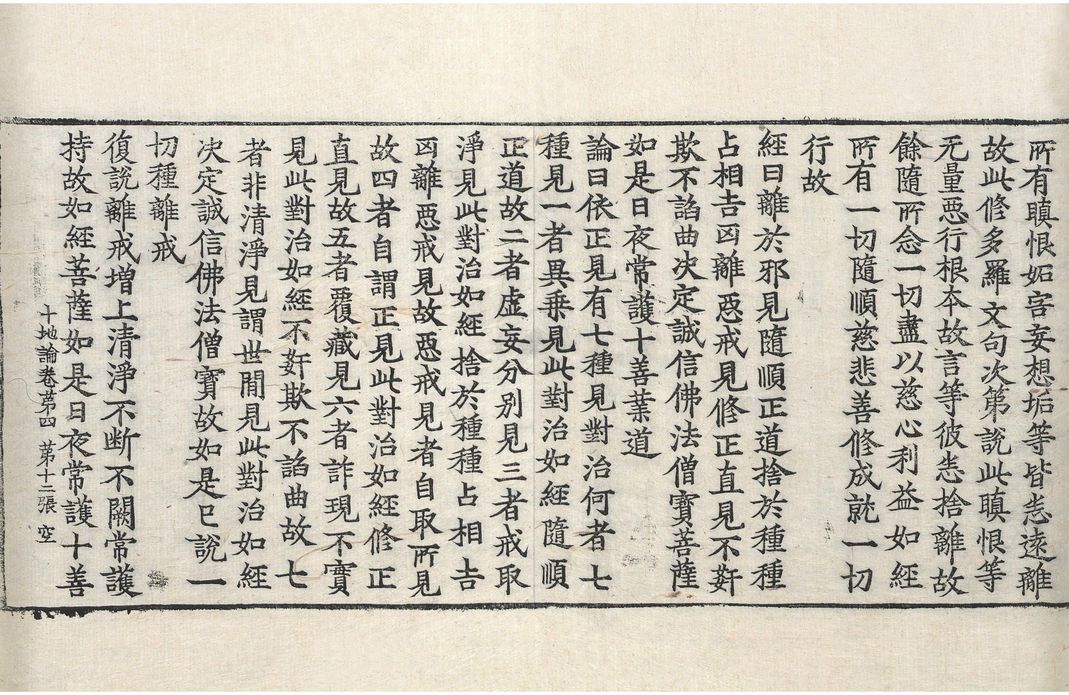 所有瞋恨妬害妄想垢等皆悉遠離
故此修多羅文句次第說此瞋恨等
无量惡行根本故言等彼悉捨離故
餘隨所念一切盡以慈心利益如經
所有一切隨順慈悲善修成就一切
行故
經曰離於邪見隨順正道捨於種種
占相吉凶離惡戒見修正直見不姧
欺不諂曲决定誠信佛法僧寶菩薩
如是日夜常護十善業道
論曰依正見有七種見對治何者七
種見一者異乗見此對治如經隨順
正道故二者虛妄分別見三者戒取
淨見此對治如經捨於種種占相吉
凶離惡戒見故惡戒見者自取所見
故四者自謂正見此對治如經修正
直見故五者覆藏見六者詐現不實
見此對治如經不姧欺不諂曲故七
者非清淨見謂世間見此對治如經
决定誠信佛法僧寶故如是已說一
切種離戒
復說離戒增上清淨不斷不闕常護
持故如經菩薩如是日夜常護十善
十地論卷第四 第十二張 空